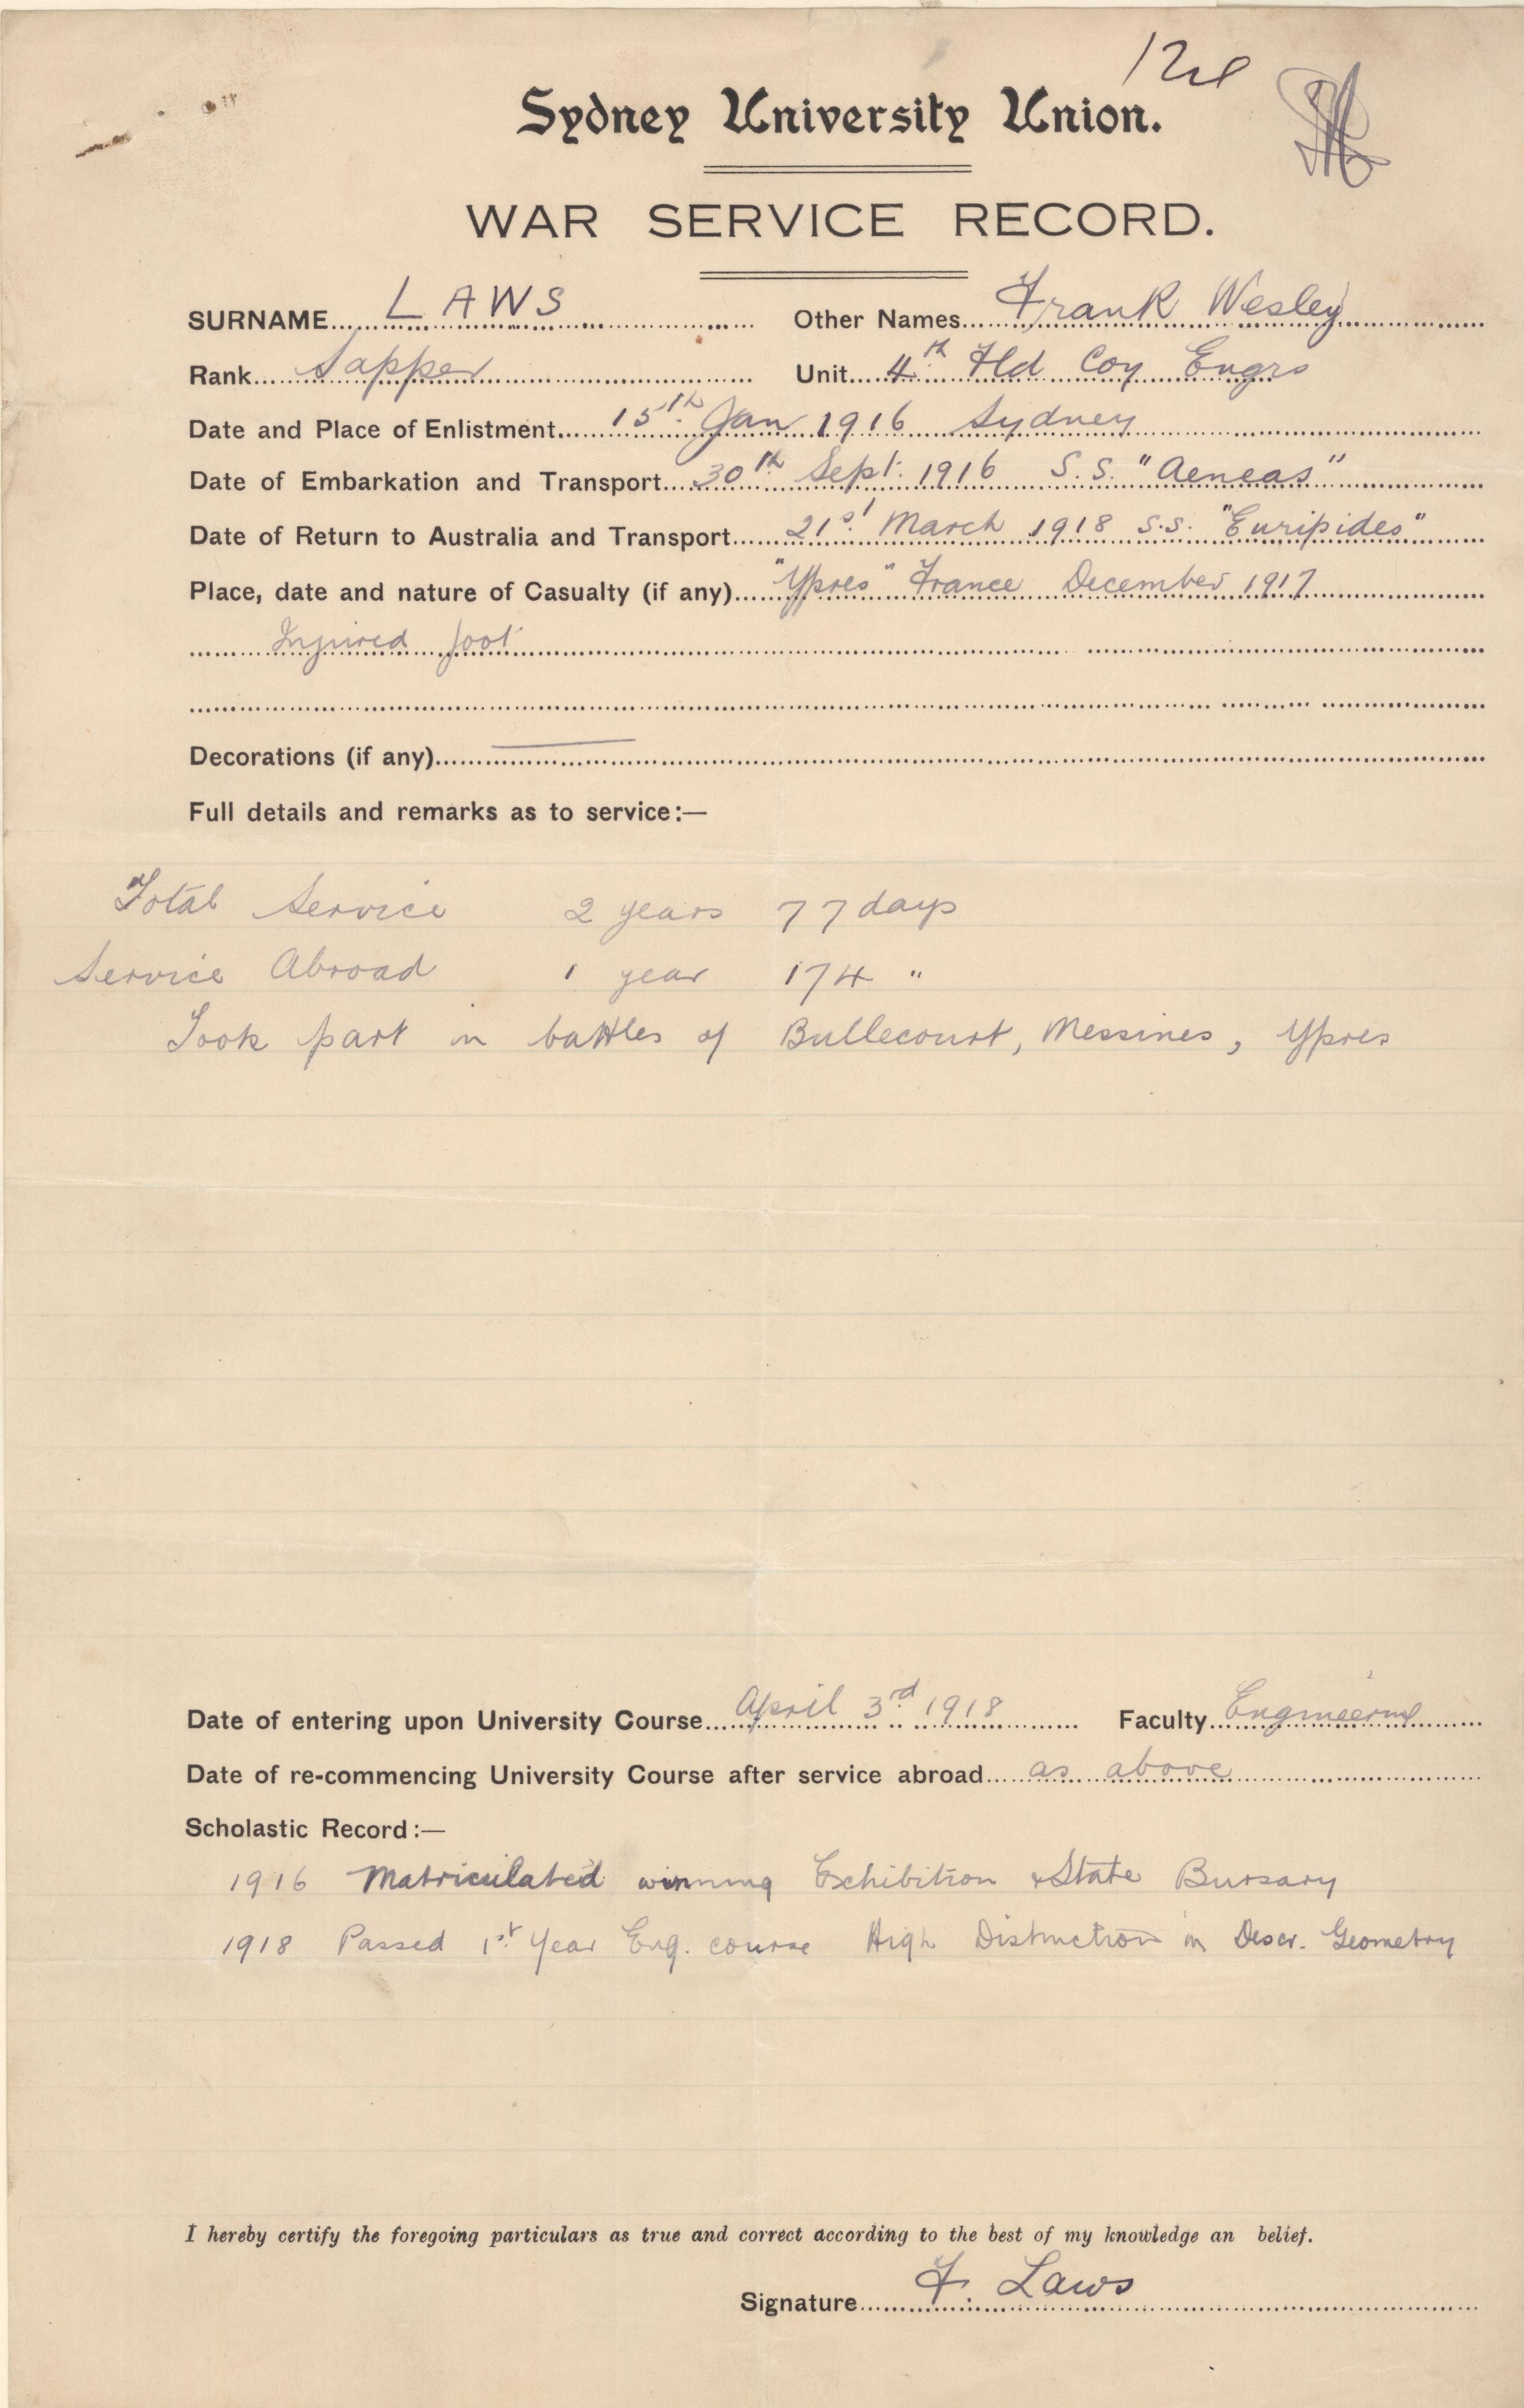 Sydney University Union.
WAR SERVICE RECORD.
SURNAME LAWS Other Names Frank Wesley
Rank Sapper Unit 4th Fld Coy Engrs
Date and Place of Enlistment 15th Jan 1916 Sydney
Date of Embarkation and Transport 30th Sept. 1916 S.S. "Aeneas"
Date of Return to Australia and Transport 21st March 1918 S.S. "Euripides"
Place, date and nature of Casualty (if any) "Ypres" France December 1917
Injured foot
Decorations (if any)
Full details and remarks as to service:—
Total Service 2 years 77 days
Service Abroad 1 year 174 "
Took part in battles of Bullecourt, Messines, Ypres
Date of entering upon University Course April 3rd 1918 Faculty Engineering
Date of re-commencing University Course after service abroad as above
Scholastic Record:—
1916 Matriculated winning Exhibition & State Bursary
1918 Passed 1st Year Eng. course High Distinction in Descr. Geometry
I hereby certify the foregoing particulars as true and correct according to the best of my knowledge an belief.
Signature F. Laws